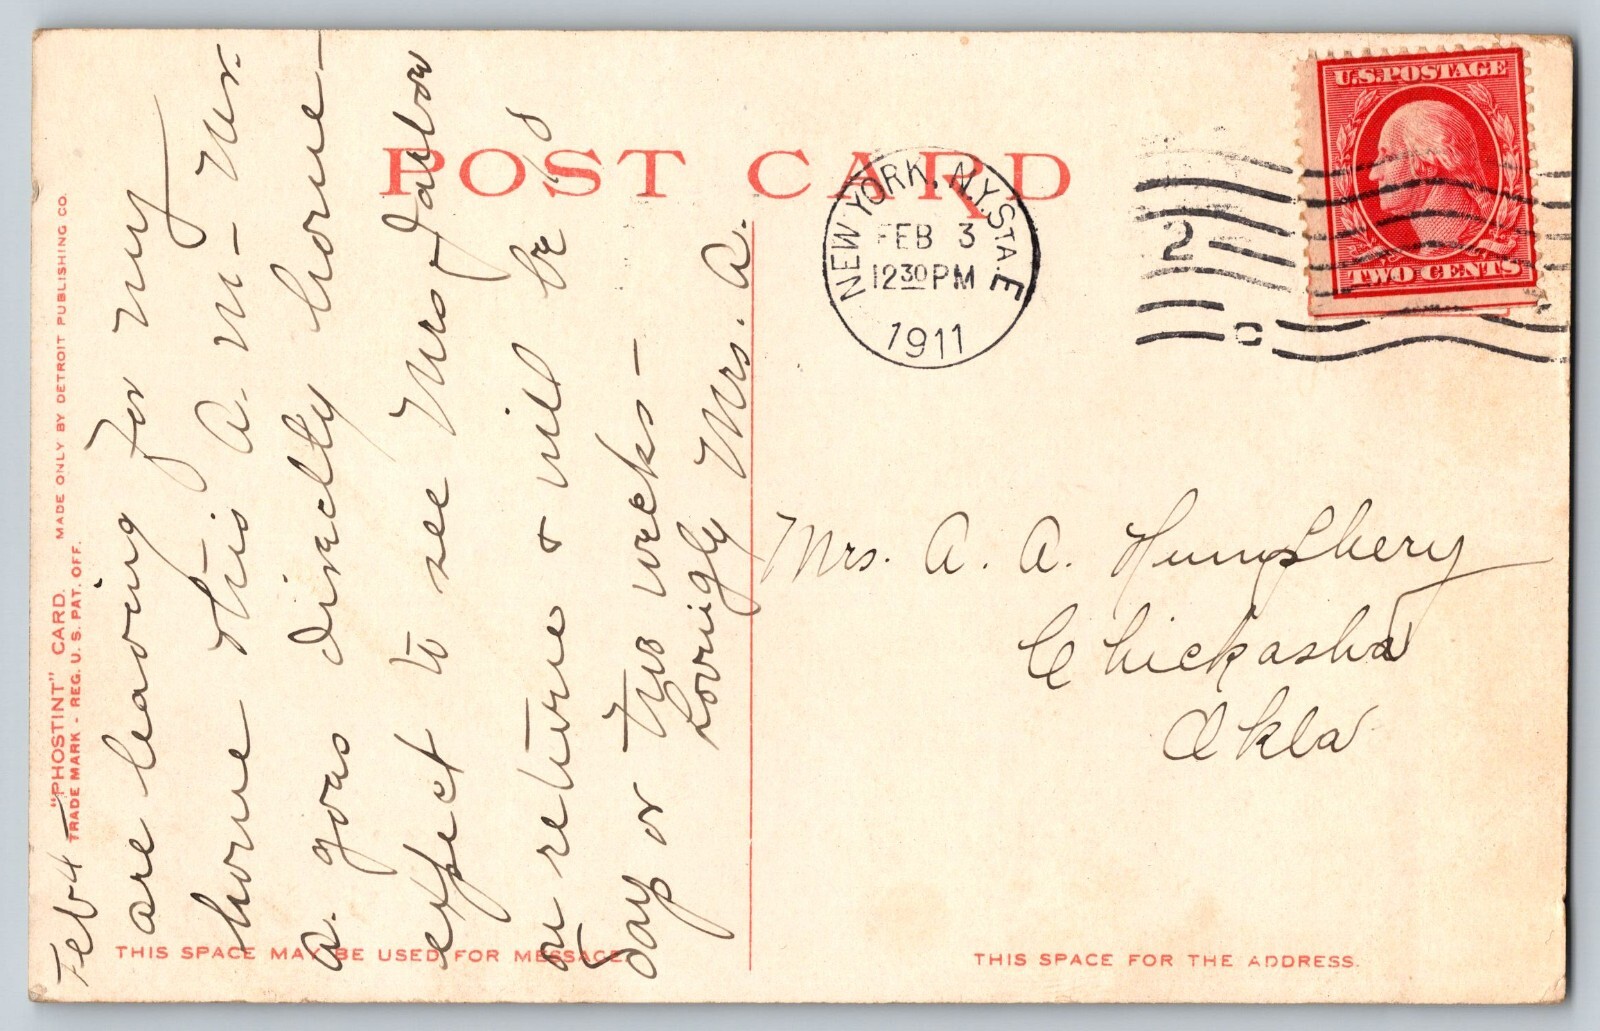 POST CARD
"PHOSTINT" CARD. MADE ONLY BY DETROIT PUBLISHING CO.
TRADE MARK - REG. U. S. PAT. OFF.
Feb 4 -
are leaving for my
home this A. M - Mr.
A. goes directly home -
expect to see Mrs
on return & will be
day or two weeks -
Lovingly Mrs. A.
THIS SPACE MAY BE USED FOR MESSAGE
NEW YORK, N.Y. STA. E
FEB 3
12 30 PM
1911
2
C
U.S. POSTAGE
TWO CENTS
Mrs. A. A. Humphery
Chickasha
Okla
THIS SPACE FOR THE ADDRESS.